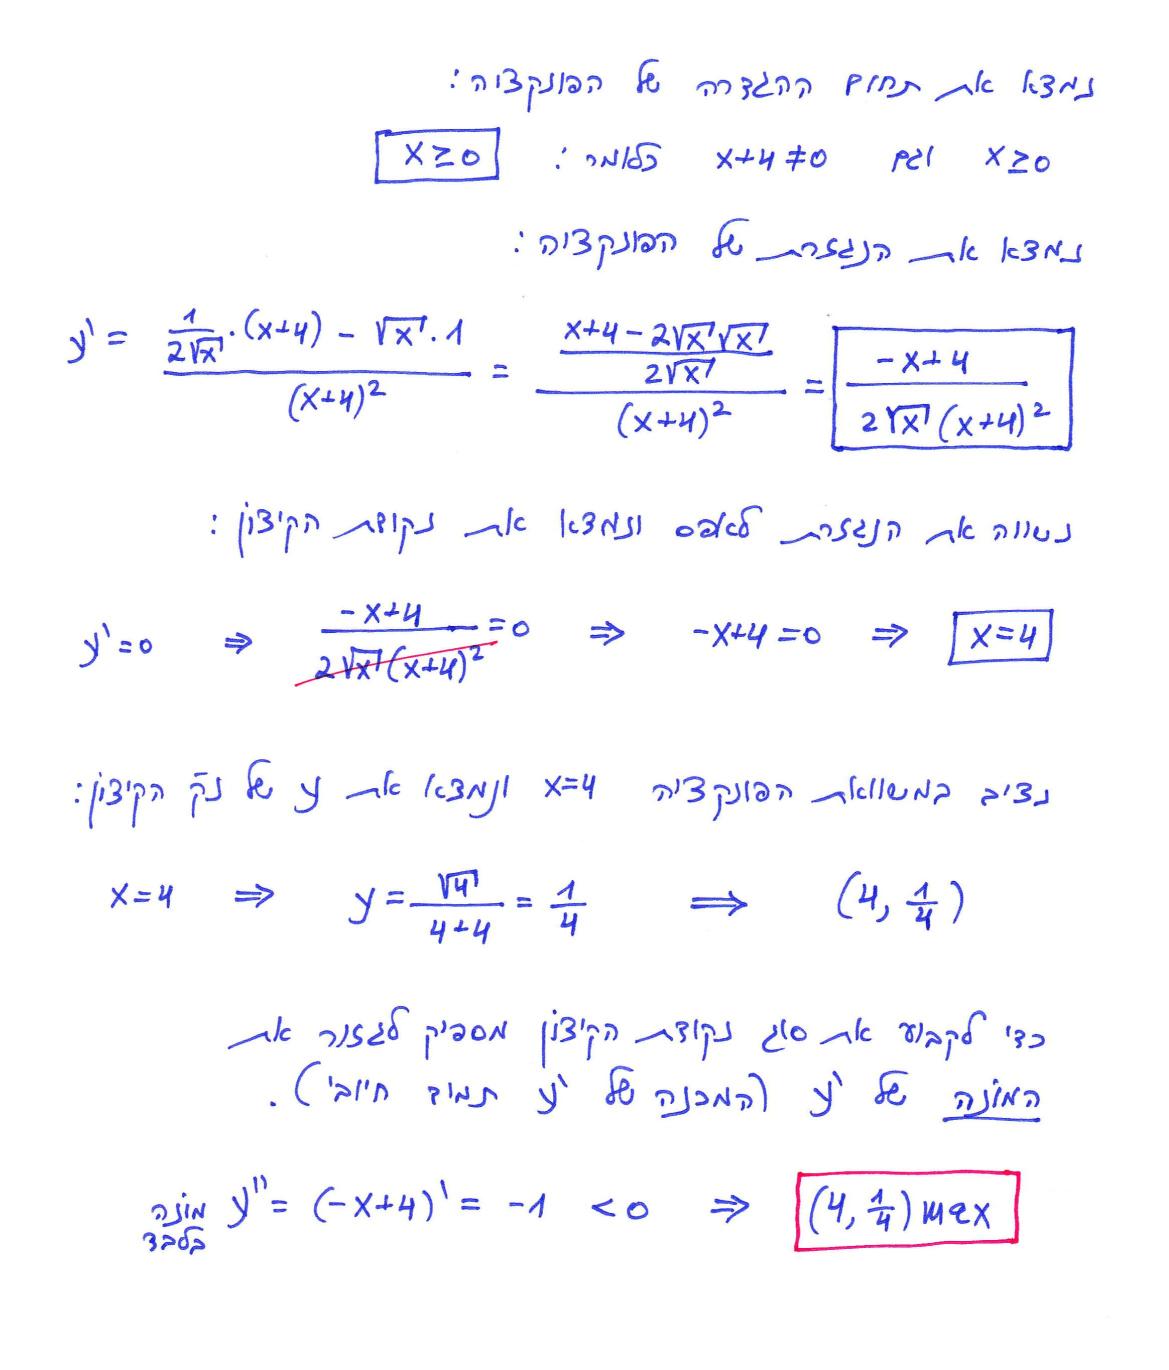 נמצא את תחום ההגדרה של הפונקציה:
x≥0 וגם x+4≠0 כלומר: x≥0
נמצא את הנגזרת של הפונקציה:
y' = (1/(2√x)·(x+4) - √x·1)/(x+4)² = ((x+4-2√x√x)/(2√x))/(x+4)² = (-x+4)/(2√x(x+4)²)
נשווה את הנגזרת לאפס ונמצא את נקודת הקיצון:
y'=0 ⇒ (-x+4)/(2√x(x+4)²)=0 ⇒ -x+4=0 ⇒ x=4
נציב במשוואת הפונקציה x=4 ונמצא את y של נק' הקיצון:
x=4 ⇒ y=√4/(4+4)=1/4 ⇒ (4, 1/4)
כדי לקבוע את סוג נקודת הקיצון מספיק לגזור את
המונה של y' (המכנה של y' תמיד חיובי).
y''= (-x+4)'= -1 <0 ⇒ (4, 1/4) max
מונה
בלבד